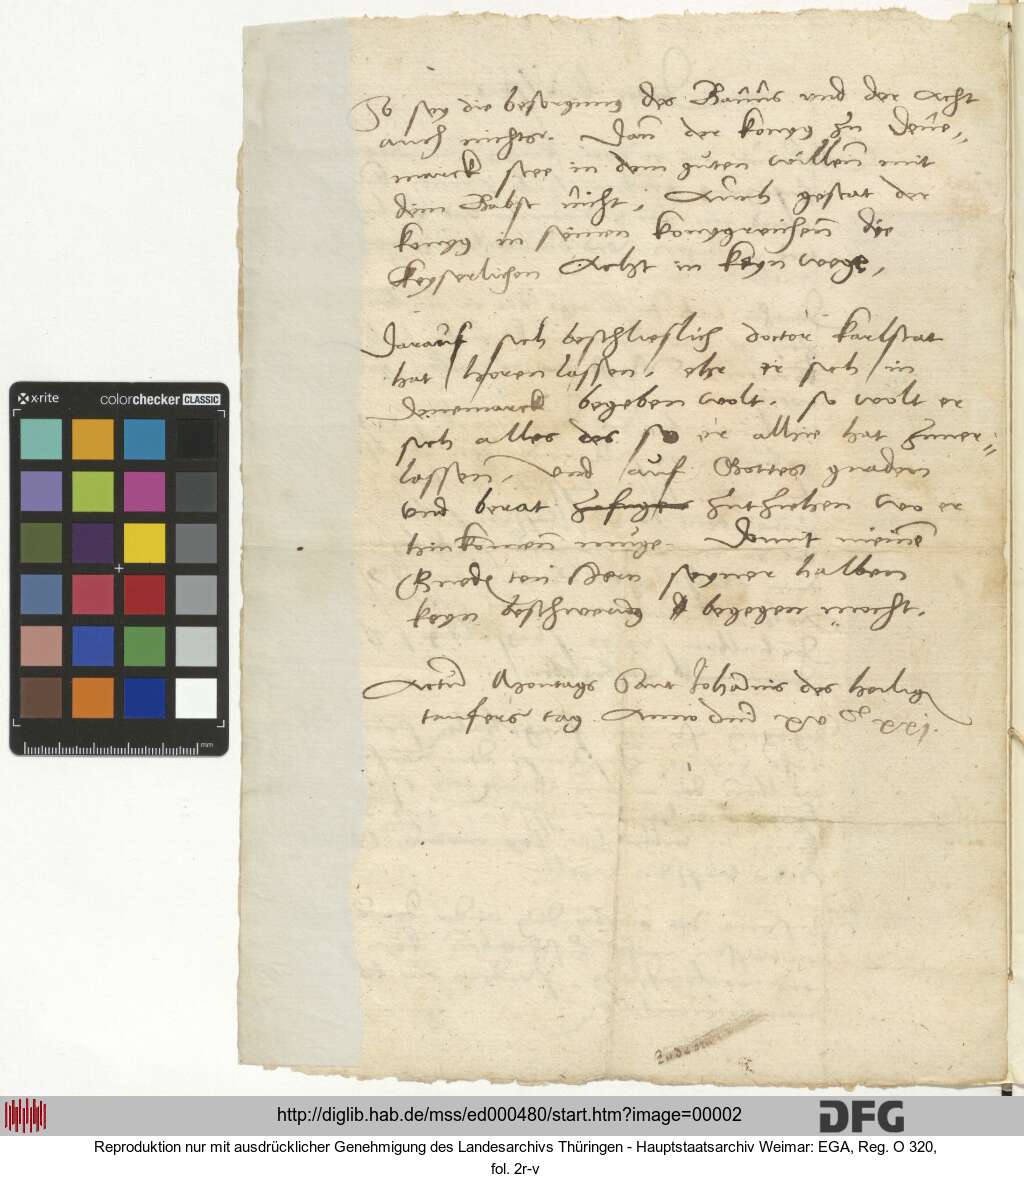 So sey die besorgung des Banns und der Acht
auch nichts. Dan der konig zu Dene„
marck stee in dem guten willen mit
dem Babst nicht, Auch gestat der
konig in seinen konygreichen die
keyserlichen Acht in keyn wege,
Darauf sich beschlieslich doctor karlstat
hat horen lassen, ehr er sich in
Denemarck begeben wolt. so wolt er
sich alles des so er alhie hat zuuer„
lassen, und auf Gottes gnaden
und berat zufuge zutziehen wo er
hinkomen muge. Domit meine
Gnedigsten Hern seyner halben
keyn beschwerung begegen mocht.
Actum Montags Sant Johannis des heilig
taufers tag. Anno dni xv C xxj.
x-rite
colorchecker CLASSIC
mm
http://diglib.hab.de/mss/ed000480/start.htm?image=00002
DFG
Reproduktion nur mit ausdrücklicher Genehmigung des Landesarchivs Thüringen - Hauptstaatsarchiv Weimar: EGA, Reg. O 320,
fol. 2r-v